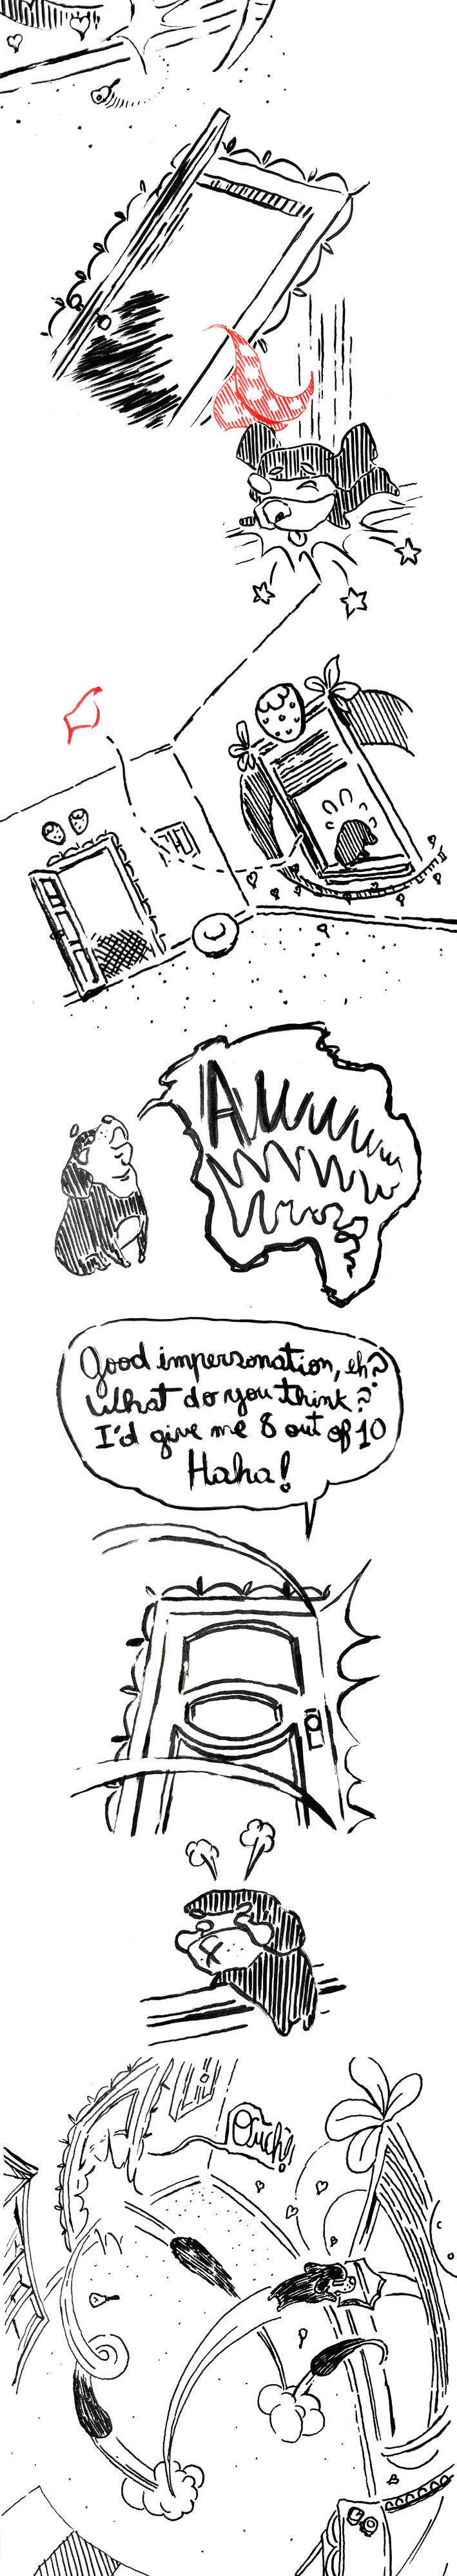 Awwww
wwww
wwww
Good impersonation, eh?
What do you think?
I'd give me 8 out of 10
Haha!
Ouch!